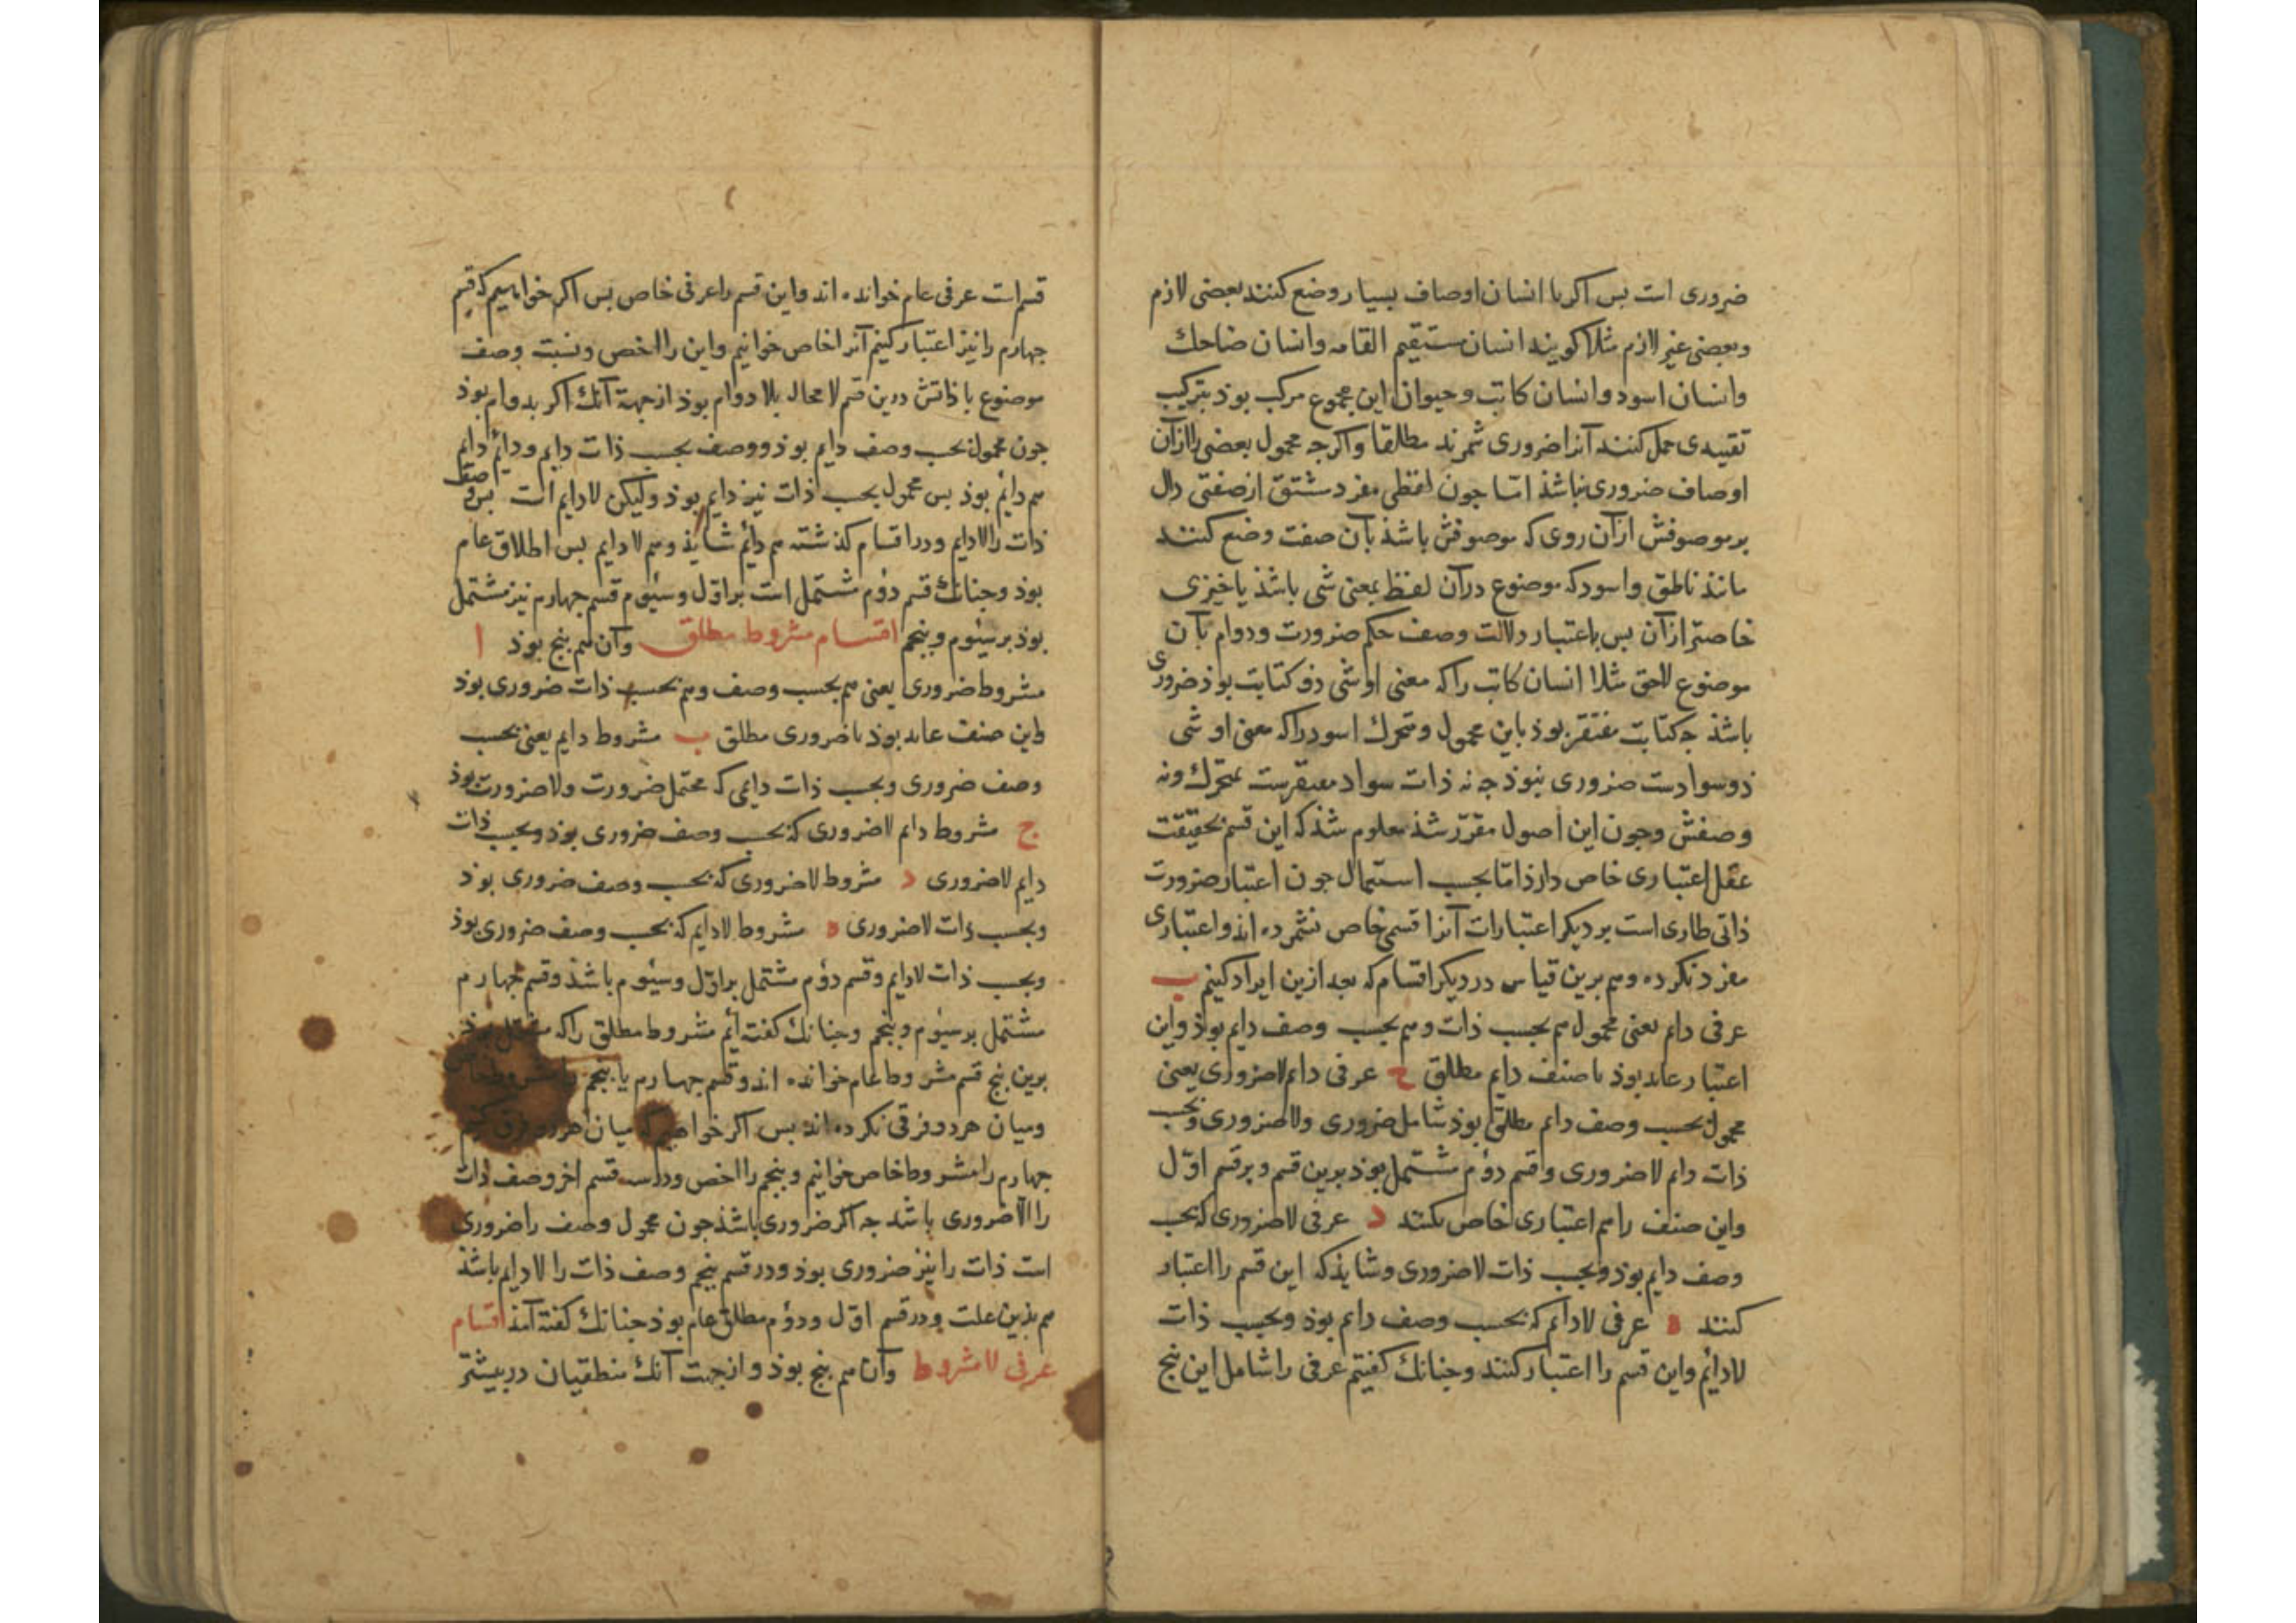 ضروری است بس اکر با انسان اوصاف بسیار وضع کنند بعضی لازم
وبعضی غیر لازم مثلا کویند انسان مستقیم القامه وانسان ضاحک
وانسان اسود وانسان کاتب وحیوان این مجموع مرکب بوذ بترکیب
تقییدی حمل کنند آنرا ضروری شمرند مطلقا واکرجه محمول بعضی را ازآن
اوصاف ضروری نباشذ امّا جون لفظی مفرد مشتق از صفتی دال
بر موصوفش ازآن روی که موصوفش باشذ بآن صفت وضع کنند
مانند ناطق واسود که موضوع درآن لفظ بمعنی شی باشذ یا خیزی
خاصتر ازآن بس باعتبار دلالت وصف حکم ضرورت ودوام بآن
موضوع لاحق مثلا انسان کاتب را که معنی او شی ذو کتابت بوذ ضروری
باشذ جه کتابت مفتقر بوذ باین محمول ومتحرک اسود را که معنی او شی
ذو سوادست ضروری نبوذ جه نه ذات سواد مفتقرست بمتحرک ونه
وصفش وجون این اصول مقرّر شذ معلوم شذ که این قسم بحقیقت
عقل اعتباری خاص دارذ امّا بحسب استعمال جون اعتبار ضرورت
ذاتی طاری است بر دیکر اعتبارات آنرا قسمی خاص نشمرده اند واعتباری
مفرد نکرده وهم برین قیاس در دیکر اقسام که بعد ازین ایراد کنیم ب
عرفی دایم یعنی محمول هم بحسب ذات وهم بحسب وصف دایم بوذ واین
اعتبار عاید بوذ با صنف دایم مطلق ج عرفی دایم لاضروری یعنی
محمول بحسب وصف دایم مطلق بوذ شامل ضروری ولاضروری وبحسب
ذات دایم لاضروری وقسم دوُم مشتمل بوذ برین قسم وبر قسم اوّل
واین صنف را هم اعتباری خاص نکنند د عرفی لاضروری که بحسب
وصف دایم بوذ وبحسب ذات لاضروری وشایذ که این قسم را اعتبار
کنند ه عرفی لادایم که بحسب وصف دایم بوذ وبحسب ذات
لادایم واین قسم را اعتبار کنند وجنانک کفتیم عرفی را شامل این بنج
قسم است عرفی عام خوانده اند واین قسم را عرفی خاص بس اکر خواهیم که قسم
جهارم را نیز اعتبار کنیم آنرا خاص خوانیم واین را اخص ونسبت وصف
موضوع با ذاتش درین قسم لامحاله بلا دوام بوذ ازجهة آنک اکر بدوام بوذ
جون محمول بحسب وصف دایم بوذ ووصف بحسب ذات دایم ودایم دایم
هم دایم بوذ بس محمول بحسب ذات نیز دایم بوذ ولیکن لادایم است بس وصف
ذات را لادایم ودر اقسام کذشته هم دایم شایذ وهم لادایم بس اطلاق عام
بوذ وجنانک قسم دوُم مشتمل است بر اوّل وسیُوم قسم جهارم نیز مشتمل
بوذ بر سیُوم وبنجم اقسام مشروط مطلق وآن هم بنج بوذ ا
مشروط ضروری یعنی هم بحسب وصف وهم بحسب ذات ضروری بوذ
واین صنف عاید بوذ با ضروری مطلق ب مشروط دایم یعنی بحسب
وصف ضروری وبحسب ذات دایمی که محتمل ضرورت ولاضرورت بوذ
ج مشروط دایم لاضروری که بحسب وصف ضروری بوذ وبحسب ذات
دایم لاضروری د مشروط لاضروری که بحسب وصف ضروری بوذ
وبحسب ذات لاضروری ه مشروط لادایم که بحسب وصف ضروری بوذ
وبحسب ذات لادایم وقسم دوُم مشتمل بر اوّل وسیُوم باشذ وقسم جهارم
مشتمل بر سیُوم وبنجم وجنانک کفته ایُم مشروط مطلق را که مشتمل بوذ
برین بنج قسم مشروط عام خوانده اند وقسم جهارم یا بنجم را مشروط خاص
ومیان هردو فرقی نکرده اند بس اکر خواهیم که میان هردو فرق کنیم
جهارم را مشروط خاص خوانیم وبنجم را اخص ودر سه قسم اخر وصف ذات
را لاضروری باشد جه اکر ضروری باشذ جون محمول وصف را ضروری
است ذات را نیز ضروری بوذ ودر قسم بنجم وصف ذات را لادایم باشذ
هم بذین علت ودر قسم اوّل ودوُم مطلق عام بوذ جنانک کفته آمذ اقسام
عرفی لامشروط وآن هم بنج بوذ وازجهت آنک منطقیان در بیشتر